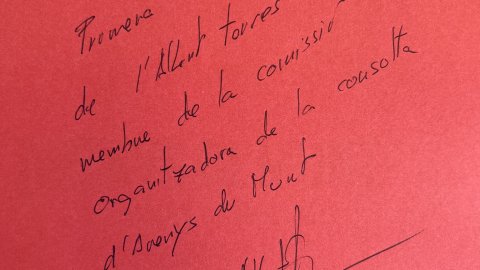 Promesa
de l'Albert Torres
membre de la comissió
organitzadora de la consolta
d'Arenys de Munt